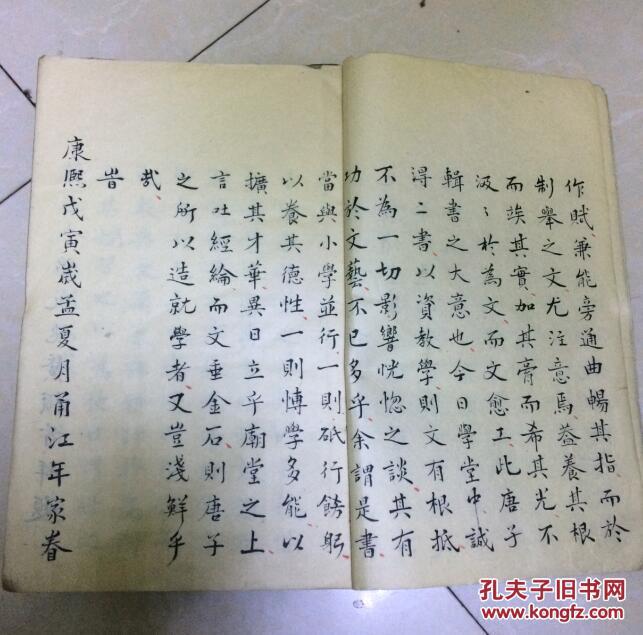 作賦兼能旁通曲暢其指而於
制舉之文尤注意焉葢養其根
而竢其實加其膏而希其光不
汲〻於為文而文愈工此唐子
輯書之大意也今日學堂中誠
得二書以資教學則文有根抵
不為一切影響恍惚之談其有
功於文藝不已多乎余謂是書
當與小學並行一則砥行飭躬
以養其德性一則博學多能以
擴其才華異日立乎廟堂之上
言吐經綸而文垂金石則唐子
之所以造就學者又豈淺鮮乎
哉
旹
康熙戊寅歲孟夏月甬江年家眷
孔夫子旧书网
www.kongfz.com